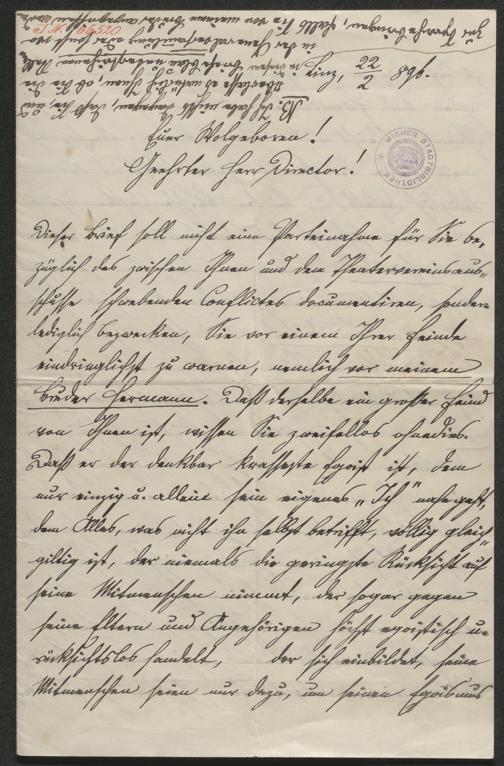 Linz, 22/2 896.
Euer Wolgeboren!
Geehrter Herr Director!
Dieser Brief soll nicht eine Parteinahme für Sie be-
züglich des zwischen Ihnen und dem Theatervereinsaus-
schusse schwebenden Conflictes documentiren, sondern
lediglich bezwecken, Sie vor einem Ihrer Feinde
eindringlichst zu warnen, nemlich vor meinem
Bruder Hermann. Daß derselbe ein grosser Feind
von Ihnen ist, wissen Sie zweifellos ohnedies.
Daß er der denkbar krasseste Egoist ist, dem
nur einzig u. allein sein eigenes „Ich" nahe geht,
dem Alles, was nicht ihn selbst betrifft, völlig gleich-
giltig ist, der niemals die geringste Rücksicht auf
seine Mitmenschen nimmt, der sogar gegen
seine Eltern und Angehörigen höchst egoistisch u.
rücksichtslos handelt, der sich einbildet, seine
Mitmenschen seien nur dazu, um seinen Egoismus
NB. Ich habe nichts dagegen, daß Sie
in der Generalversammlung
zur Sprache bringen, falls Sie von meinem Bruder angegriffen
WIENER STADTBIBLIOTHEK